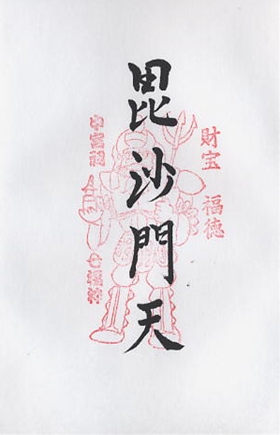 財宝 福徳
毘沙門天
中宮祠 七福神